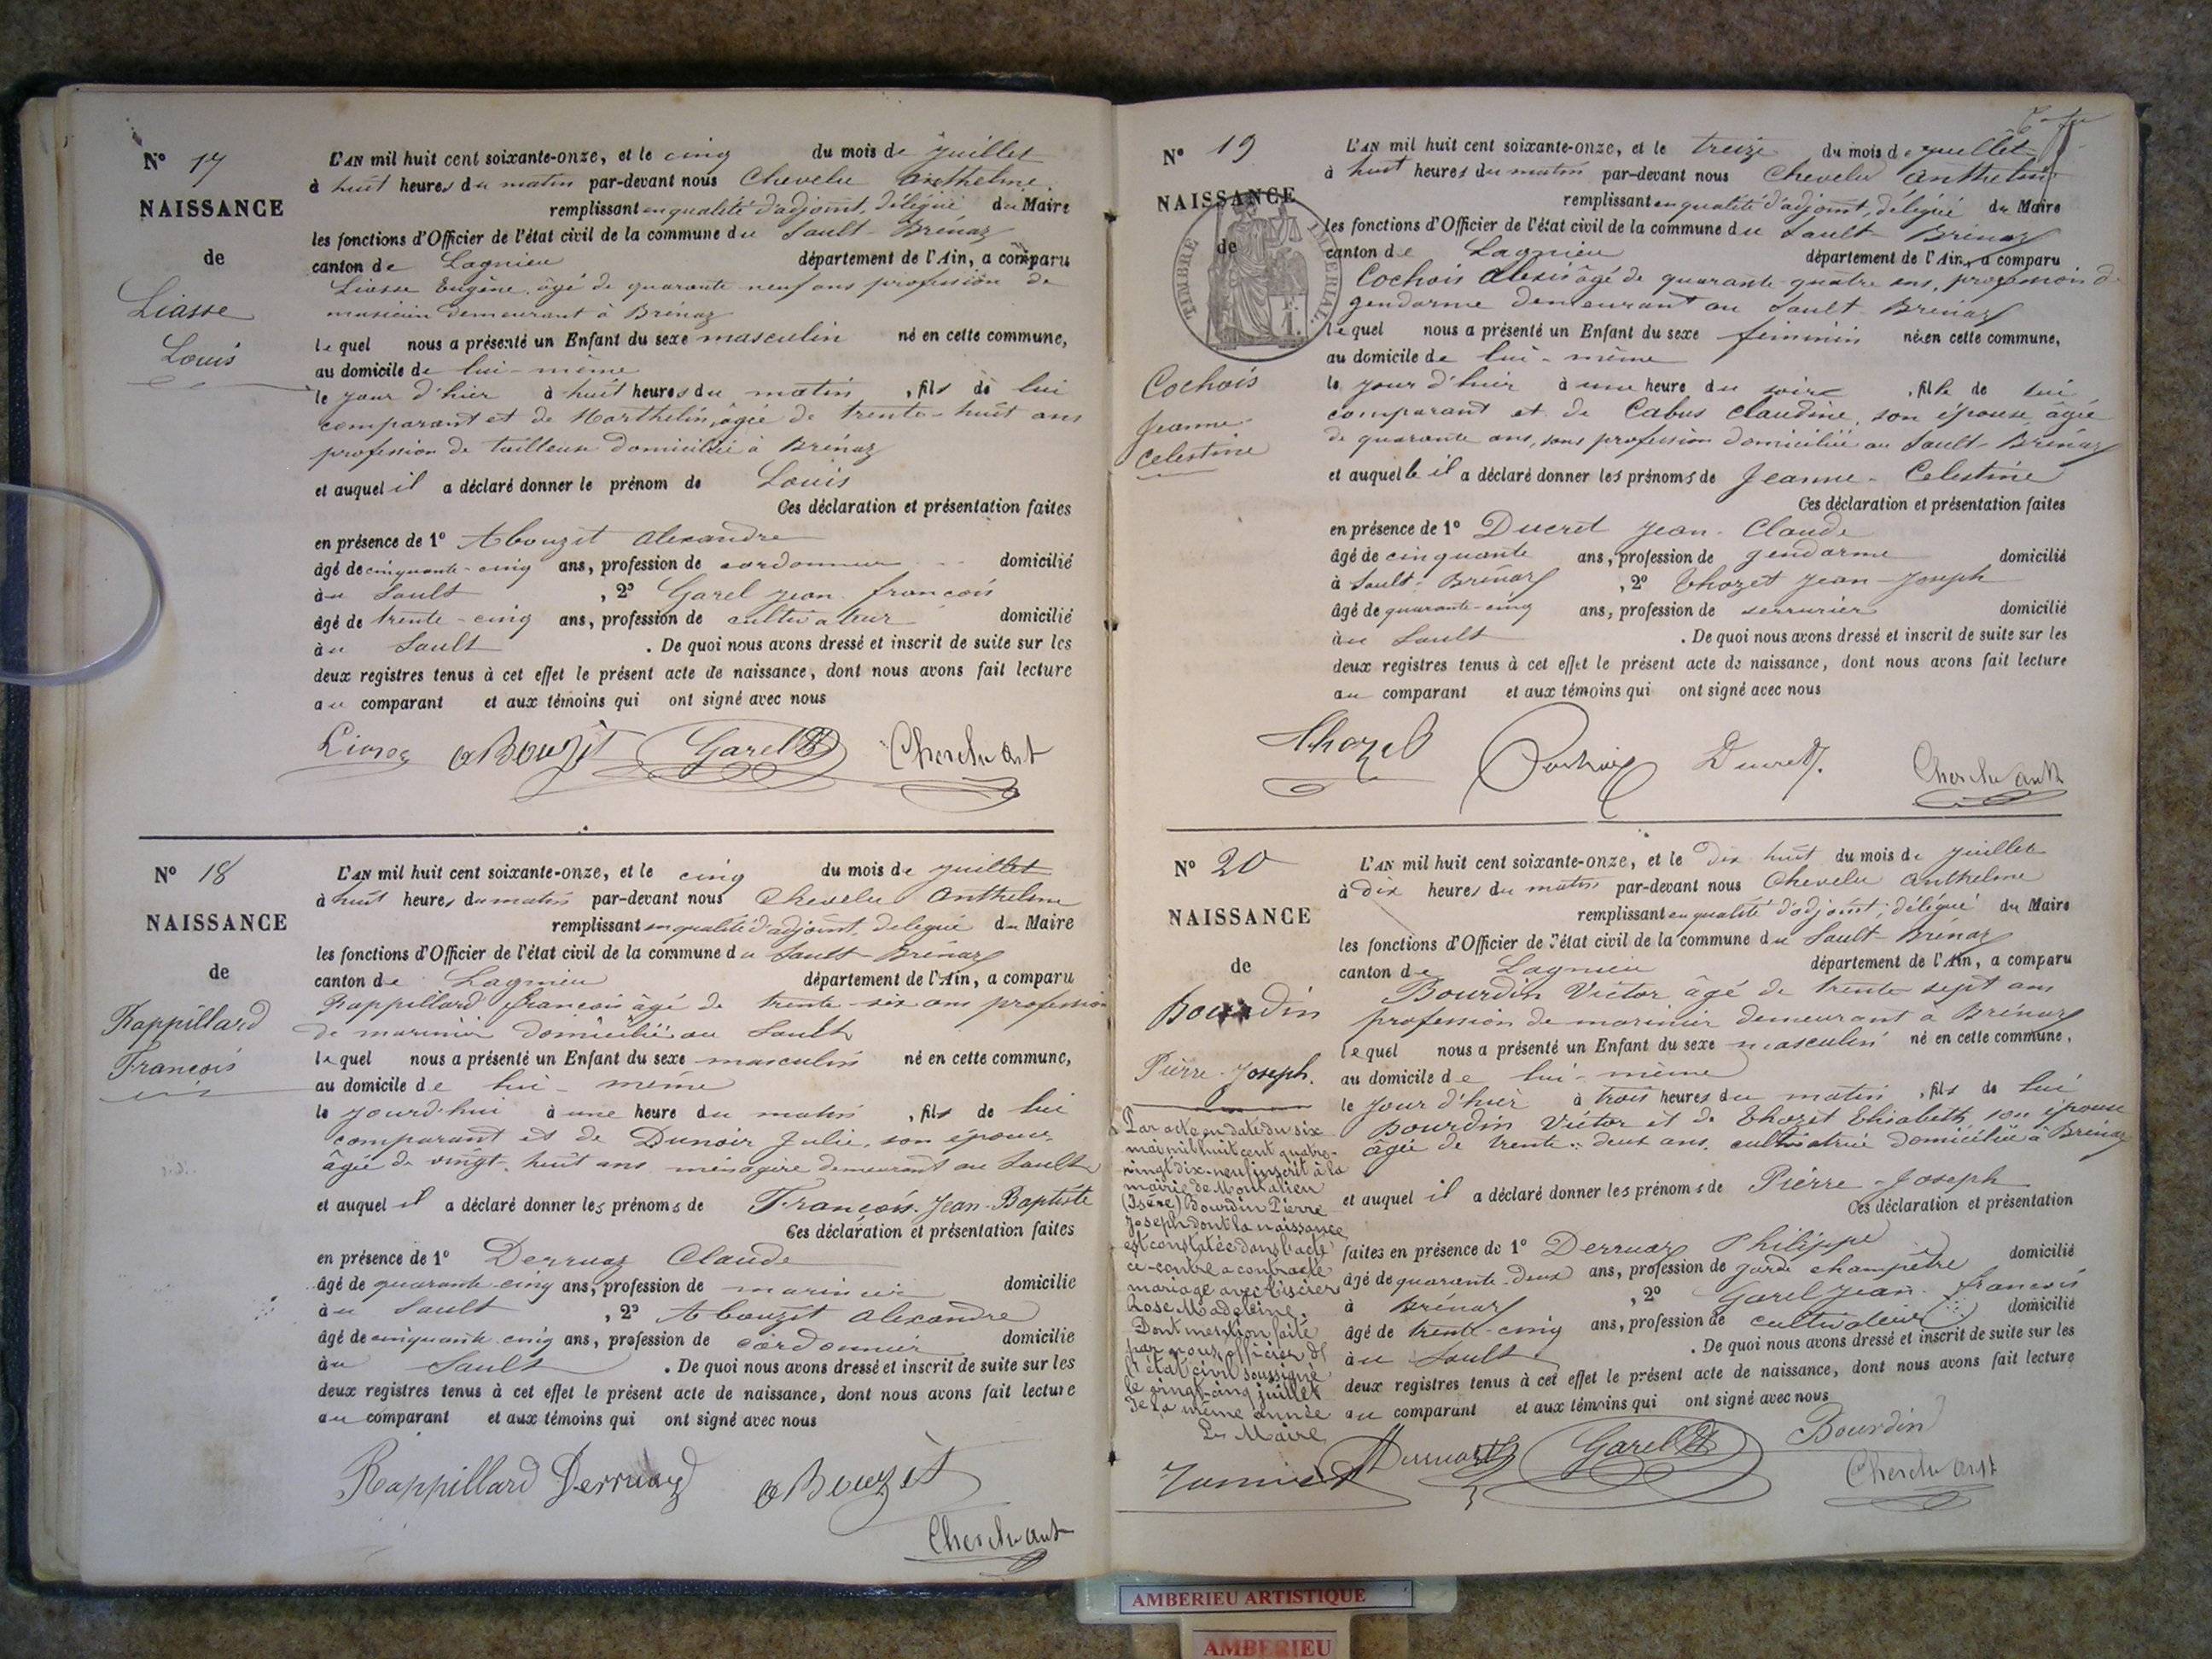 N° 17
NAISSANCE
de
Liasse
Louis
L'AN mil huit cent soixante-onze, et le cinq du mois de juillet
à huit heures du matin par-devant nous Chevelu Anthelme
remplissant en qualité d'adjoint, délégué du Maire
les fonctions d'Officier de l'état civil de la commune du Sault-Brénaz
canton de Lagnieu département de l'Ain, a comparu
Liasse Eugène, âgé de quarante neuf ans profession de
musicien demeurant à Brénaz
lequel nous a présenté un Enfant du sexe masculin né en cette commune,
au domicile de lui-même
le jour d'hier à huit heures du matin, fils de lui
comparant et de âgée de trente-huit ans
profession de tailleuse domiciliée à Brénaz
et auquel il a déclaré donner le prénom de Louis
Ces déclaration et présentation faites
en présence de 1° Abouzit Alexandre
âgé de cinquante-cinq ans, profession de cordonnier domicilié
au Sault, 2° Garel Jean françois
âgé de trente-cinq ans, profession de cultivateur domicilié
au Sault. De quoi nous avons dressé et inscrit de suite sur les
deux registres tenus à cet effet le présent acte de naissance, dont nous avons fait lecture
au comparant et aux témoins qui ont signé avec nous
aBouzit Garel
N° 18
NAISSANCE
de
Rappillard
François
L'AN mil huit cent soixante-onze, et le cinq du mois de juillet
à huit heures du matin par-devant nous Chevelu Anthelme
remplissant en qualité d'adjoint, délégué du Maire
les fonctions d'Officier de l'état civil de la commune du Sault-Brénaz
canton de Lagnieu département de l'Ain, a comparu
Rappillard françois âgé de trente-six ans profession
de marinier domicilié au Sault
lequel nous a présenté un Enfant du sexe masculin né en cette commune,
au domicile de lui-même
le jourd'hui à une heure du matin, fils de lui
comparant et de Dunoir Julie, son épouse
âgée de vingt-huit ans ménagère demeurant au Sault
et auquel il a déclaré donner les prénoms de François-Jean-Baptiste
Ces déclaration et présentation faites
en présence de 1° Derruaz Claude
âgé de quarante-cinq ans, profession de marinier domicilié
au Sault, 2° Abouzit Alexandre
âgé de cinquante-cinq ans, profession de cordonnier domicilié
au Sault. De quoi nous avons dressé et inscrit de suite sur les
deux registres tenus à cet effet le présent acte de naissance, dont nous avons fait lecture
au comparant et aux témoins qui ont signé avec nous
Rappillard Derruaz aBouzit
N° 19
NAISSANCE
de
TIMBRE IMPÉRIAL
Cochois
Jeanne-
Celestine
L'AN mil huit cent soixante-onze, et le treize du mois de juillet
à huit heures du matin par-devant nous Chevelu Anthelme
remplissant en qualité d'adjoint, délégué du Maire
les fonctions d'Officier de l'état civil de la commune du Sault-Brénaz
canton de Lagnieu département de l'Ain, a comparu
Cochois Alexis âgé de quarante-quatre ans, profession de
gendarme demeurant au Sault-Brénaz
lequel nous a présenté un Enfant du sexe féminin née en cette commune,
au domicile de lui-même
le jour d'hier à une heure du soir, fille de lui
comparant et de Cabus Claudine, son épouse, âgée
de quarante ans, sans profession domiciliée au Sault-Brénaz
et auquelle il a déclaré donner les prénoms de Jeanne-Celestine
Ces déclaration et présentation faites
en présence de 1° Ducret Jean-Claude
âgé de cinquante ans, profession de gendarme domicilié
à Sault-Brénaz, 2° Thozet Jean-Joseph
âgé de quarante-cinq ans, profession de serrurier domicilié
au Sault. De quoi nous avons dressé et inscrit de suite sur les
deux registres tenus à cet effet le présent acte de naissance, dont nous avons fait lecture
au comparant et aux témoins qui ont signé avec nous
Thozet Cochois Ducret
N° 20
NAISSANCE
de
Bourdin
Pierre-Joseph.
L'AN mil huit cent soixante-onze, et le dix huit du mois de juillet
à dix heures du matin par-devant nous Chevelu Anthelme
remplissant en qualité d'adjoint, délégué du Maire
les fonctions d'Officier de l'état civil de la commune du Sault-Brénaz
canton de Lagnieu département de l'Ain, a comparu
Bourdin Victor âgé de trente sept ans
profession de marinier demeurant à Brénaz
lequel nous a présenté un Enfant du sexe masculin né en cette commune,
au domicile de lui-même
le jour d'hier à trois heures du matin, fils de lui
Bourdin Victor et de Thozet Elisabeth son épouse
âgée de trente-deux ans, cultivatrice domiciliée à Brénaz
et auquel il a déclaré donner les prénoms de Pierre-Joseph
Ces déclaration et présentation
faites en présence de 1° Derruaz Philippe
âgé de quarante-deux ans, profession de garde champêtre domicilié
à Brénaz, 2° Garel Jean-françois
âgé de trente-cinq ans, profession de cultivateur domicilié
au Sault. De quoi nous avons dressé et inscrit de suite sur les
deux registres tenus à cet effet le présent acte de naissance, dont nous avons fait lecture
au comparant et aux témoins qui ont signé avec nous
Par acte en date du six
mai mil huit cent quatre-
vingt dix-neuf inscrit à la
mairie de Montalieu
(Isère) Bourdin Pierre
Joseph dont la naissance
est constatée dans l'acte
ci-contre a contracté
mariage avec
Rose Madeleine.
Dont mention faite
par nous officier de
l'état civil soussigné
le vingt-cinq juillet
de la même année
Le Maire
Derruaz Garel Bourdin
AMBERIEU ARTISTIQUE
AMBERIEU